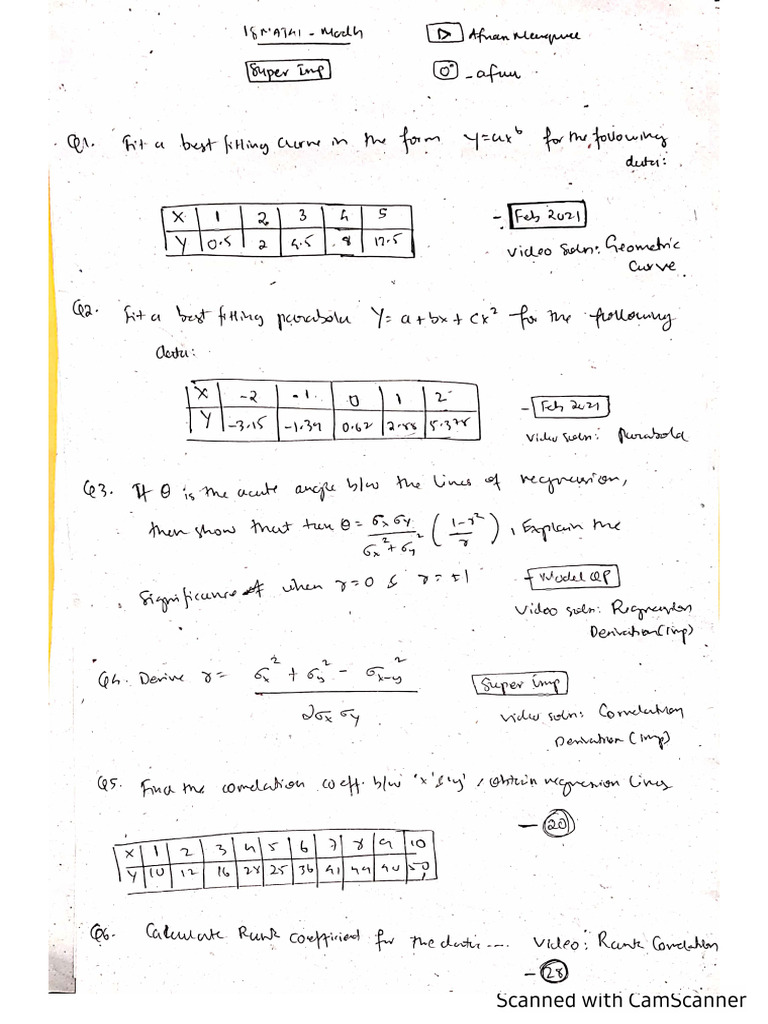 18MAT41 - Modly
Super Imp
_afnu
Q1. Fit a best fitting curve in the form y=ax^b for the following
data:
X 1 2 3 4 5
Y 0.5 2 4.5 8 12.5
- Feb 2021
Video Soln: Geometric
Curve
Q2. Fit a best fitting parabola Y= a+bx+cx² for the following
data:
X -2 -1 0 1 2
Y -3.15 -1.39 0.62 2.88 5.378
- Feb 2021
Video soln: Parabola
Q3. If θ is the acute angle b/w the lines of regression,
then show that tan θ = σx σy / σx²+σy² (1-r² / r), Explain the
Significance when r=0 & r=±1
- Model QP
Video soln: Regression
Derivation (Imp)
Q4. Derive r= σx² + σy² - σx-y² / 2σx σy
Super imp
Video soln: Correlation
Derivation (Imp)
Q5. Find the correlation coeff. b/w 'x' & 'y', obtain regression lines
- 20
X 1 2 3 4 5 6 7 8 9 10
Y 10 12 16 28 25 36 41 49 40 50
Q6. Calculate Rank coefficient for the data .... Video: Rank Correlation
- 28
Scanned with CamScanner